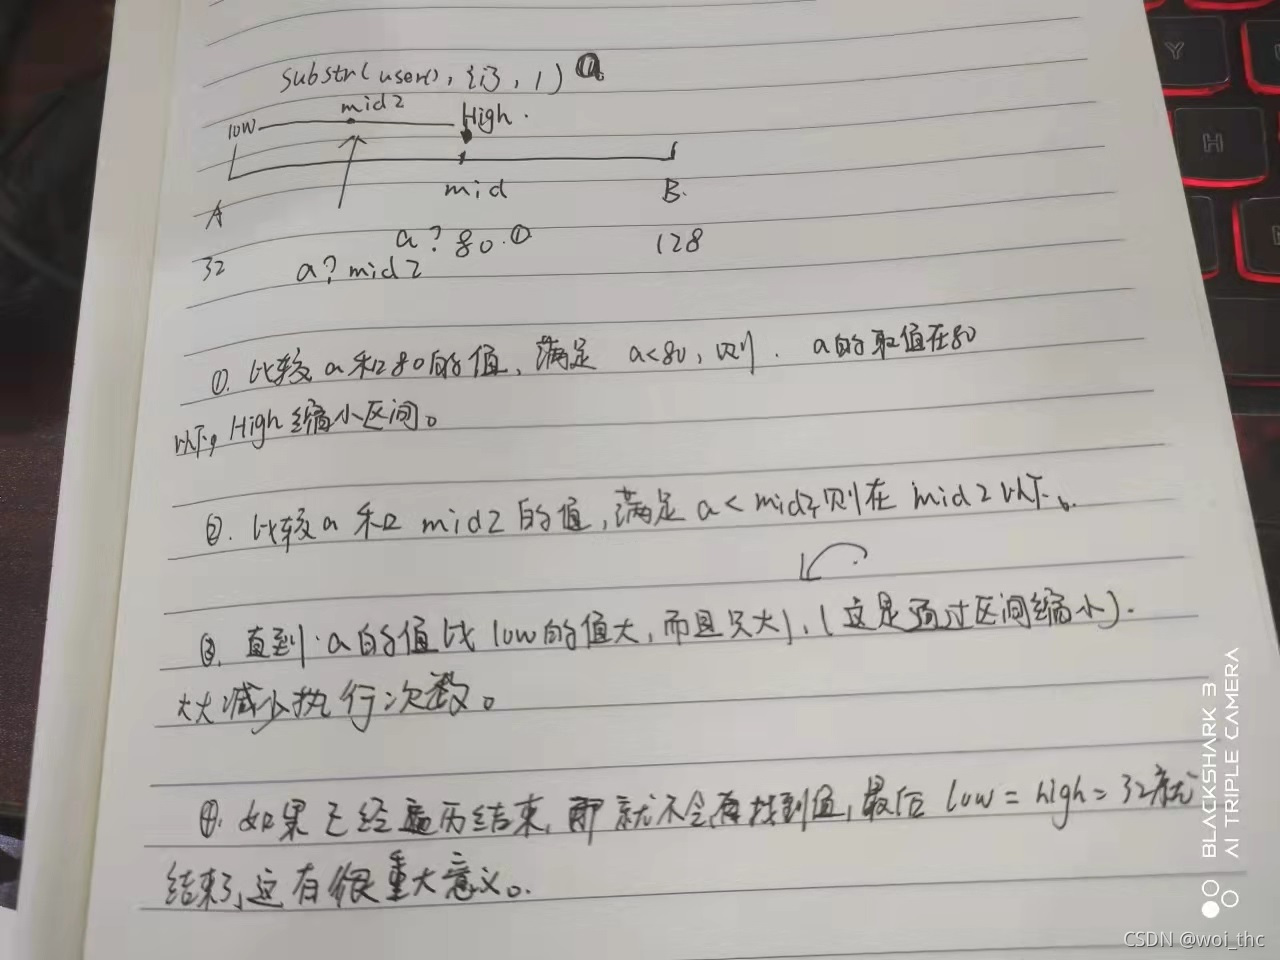 substr(user(), {i}, 1) a
mid2
low
High.
mid
B.
A
a? 80. ①
128
32
a? mid2
①. 比较a和80的值, 满足 a<80, 则. a的取值在80
以下, High缩小区间。
②. 比较a和 mid2 的值, 满足 a < mid2, 则在 mid2 以下。
③. 直到 a的值比 low的值大, 而且只大1, (这是通过区间缩小).
大大减少执行次数。
④. 如果已经遍历结束, 那就不会再找到值, 最后 low = high = 32就
结束了, 这有很重大意义。
Y
H
BLACKSHARK 3
AI TRIPLE CAMERA
CSDN @woi_thc